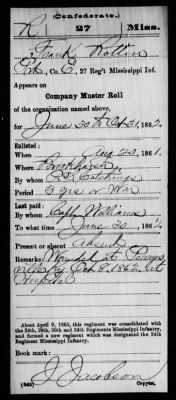 (Confederate.)
R 27 Miss.
Frank Rollin
Pvt, Co. E, 27 Reg't Mississippi Inf.
Appears on
Company Muster Roll
of the organization named above,
for June 30 to Oct 31, 1862
Enlisted:
When Aug 20, 1861.
Where Brookhaven
By whom Catchings
Period 3 yrs or War
Last paid:
By whom Capt. Williams
To what time June 30, 1862
Present or absent Absent
Remarks: Wounded at Perry
ville Ky Oct 8, 1862 at
Hospital
About April 9, 1865, this regiment was consolidated with
the 24th, 29th, 30th and 34th Mississippi Infantry, and
formed a new regiment which was designated the 24th
Regiment Mississippi Infantry.
Book mark:
J. Jacobson
(642) Copyist.